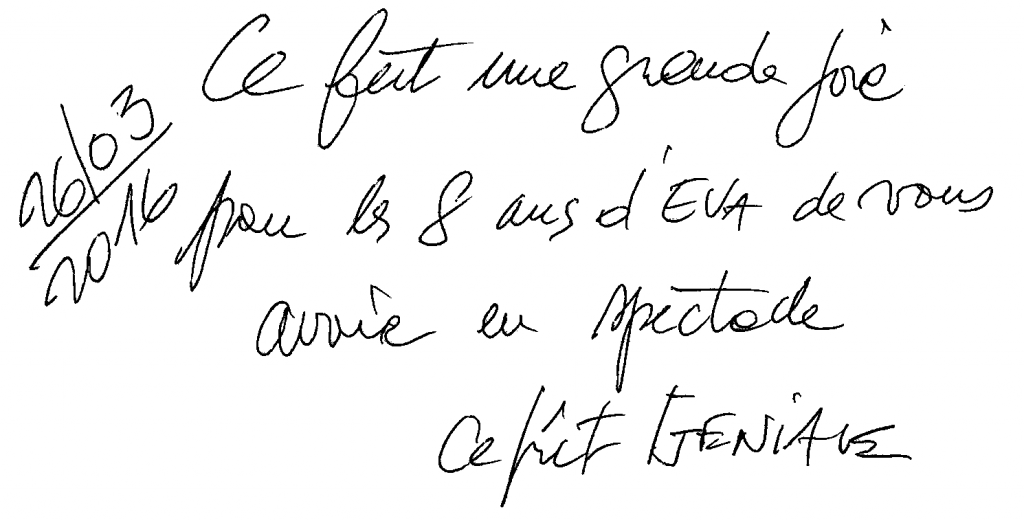 26/03
2016
Ce fut une grande joie
pour les 8 ans d'EVA de vous
avoir en spectacle
Ce fût GENIALE